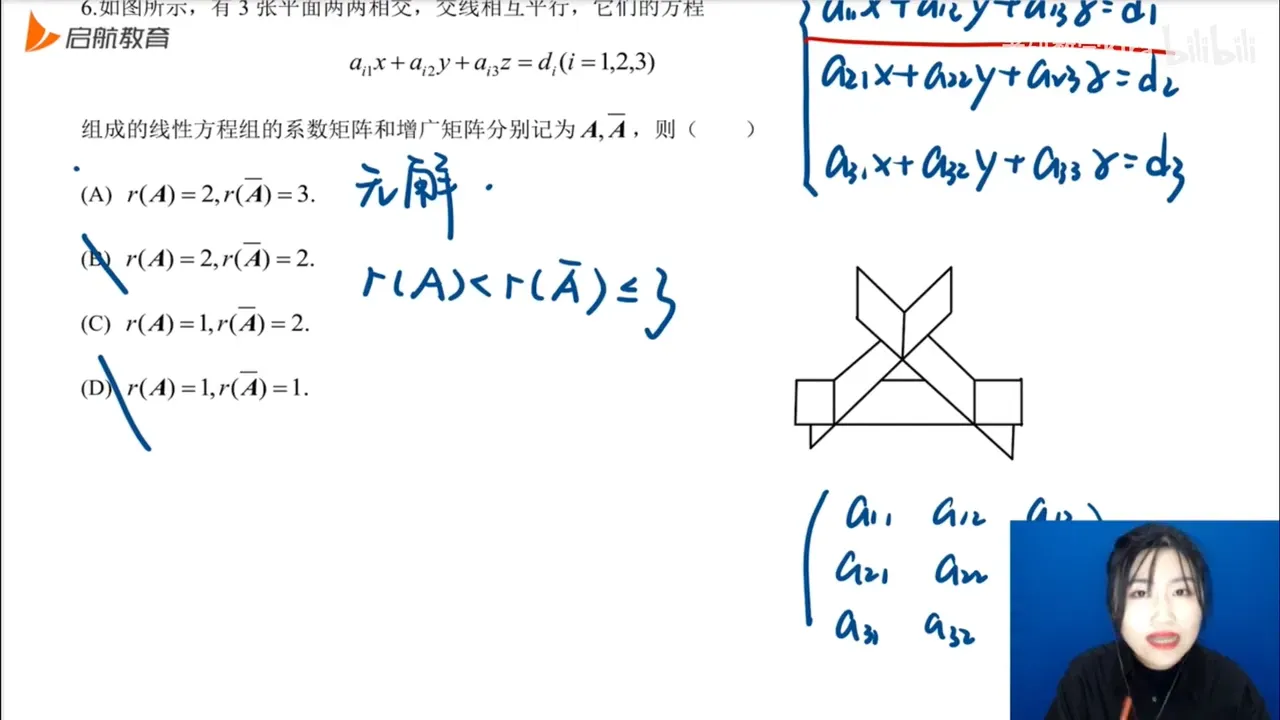 6.如图所示，有 3 张平面两两相交，交线相互平行，它们的方程
启航教育
a_{i1}x + a_{i2}y + a_{i3}z = d_i (i = 1,2,3)
组成的线性方程组的系数矩阵和增广矩阵分别记为 A, A̅，则（　　）
(A) r(A) = 2, r(A̅) = 3.
(B) r(A) = 2, r(A̅) = 2.
(C) r(A) = 1, r(A̅) = 2.
(D) r(A) = 1, r(A̅) = 1.
无解.
r(A) < r(A̅) ≤ 3
a₁₁x + a₁₂y + a₁₃z = d₁
bilibili
a₂₁x + a₂₂y + a₂₃z = d₂
a₃₁x + a₃₂y + a₃₃z = d₃
a₁₁ a₁₂ a₁₃
a₂₁ a₂₂
a₃₁ a₃₂